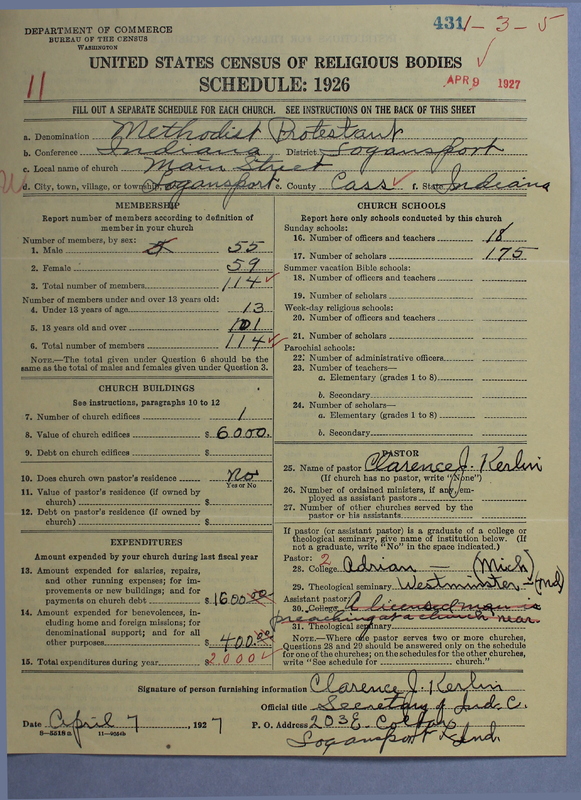 431/-3-5
DEPARTMENT OF COMMERCE
BUREAU OF THE CENSUS
WASHINGTON
UNITED STATES CENSUS OF RELIGIOUS BODIES
SCHEDULE: 1926
APR 9 1927
11
FILL OUT A SEPARATE SCHEDULE FOR EACH CHURCH. SEE INSTRUCTIONS ON THE BACK OF THIS SHEET
a. Denomination Methodist Protestant
b. Conference Indiana District Logansport
c. Local name of church Main Street
d. City, town, village, or township Logansport e. County Cass f. State Indiana
MEMBERSHIP
Report number of members according to definition of
member in your church
Number of members, by sex:
1. Male 55
2. Female 59
3. Total number of members 114
Number of members under and over 13 years old:
4. Under 13 years of age 13
5. 13 years old and over 101
6. Total number of members 114
NOTE.—The total given under Question 6 should be the
same as the total of males and females given under Question 3.
CHURCH BUILDINGS
See instructions, paragraphs 10 to 12
7. Number of church edifices 1
8. Value of church edifices $ 6000.
9. Debt on church edifices $
10. Does church own pastor's residence No
Yes or No
11. Value of pastor's residence (if owned by
church) $
12. Debt on pastor's residence (if owned by
church) $
EXPENDITURES
Amount expended by your church during last fiscal year
13. Amount expended for salaries, repairs,
and other running expenses; for im-
provements or new buildings; and for
payments on church debt $ 1600.00
14. Amount expended for benevolences, in-
cluding home and foreign missions; for
denominational support; and for all
other purposes $ 400.00
15. Total expenditures during year $ 2000
CHURCH SCHOOLS
Report here only schools conducted by this church
Sunday schools:
16. Number of officers and teachers 18
17. Number of scholars 175
Summer vacation Bible schools:
18. Number of officers and teachers
19. Number of scholars
Week-day religious schools:
20. Number of officers and teachers
21. Number of scholars
Parochial schools:
22. Number of administrative officers
23. Number of teachers—
a. Elementary (grades 1 to 8)
b. Secondary
24. Number of scholars—
a. Elementary (grades 1 to 8)
b. Secondary
PASTOR
25. Name of pastor Clarence J. Kerlin
(If church has no pastor, write "None")
26. Number of ordained ministers, if any, em-
ployed as assistant pastors
27. Number of other churches served by the
pastor or his assistants
If pastor (or assistant pastor) is a graduate of a college or
theological seminary, give name of institution below. (If
not a graduate, write "No" in the space indicated.)
Pastor: 2
28. College Adrian — (Mich)
29. Theological seminary Westminster - (Md)
Assistant pastor:
30. College A licensed man is
preaching at a church near.
31. Theological seminary
NOTE.—Where one pastor serves two or more churches,
Questions 28 and 29 should be answered only on the schedule
for one of the churches; on the schedules for the other churches,
write "See schedule for church."
Signature of person furnishing information Clarence J. Kerlin
Official title Secretary of Ind. C.
Date April 7, 1927 P. O. Address 203 E. Colfax
Logansport Ind.
8—5518 a 11—9054b